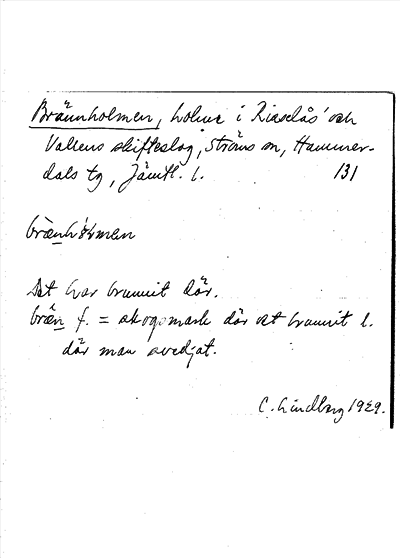 Brännholmen, holme i Risselås' och
Vallens skifteslag, Ströms sn, Hammer-
dals tg, Jämtl. l. 131
brænhɷlmen
Det har brunnit där.
bræn f. = skogsmark där det brunnit l.
där man svedjat.
C. Lindberg 1929.